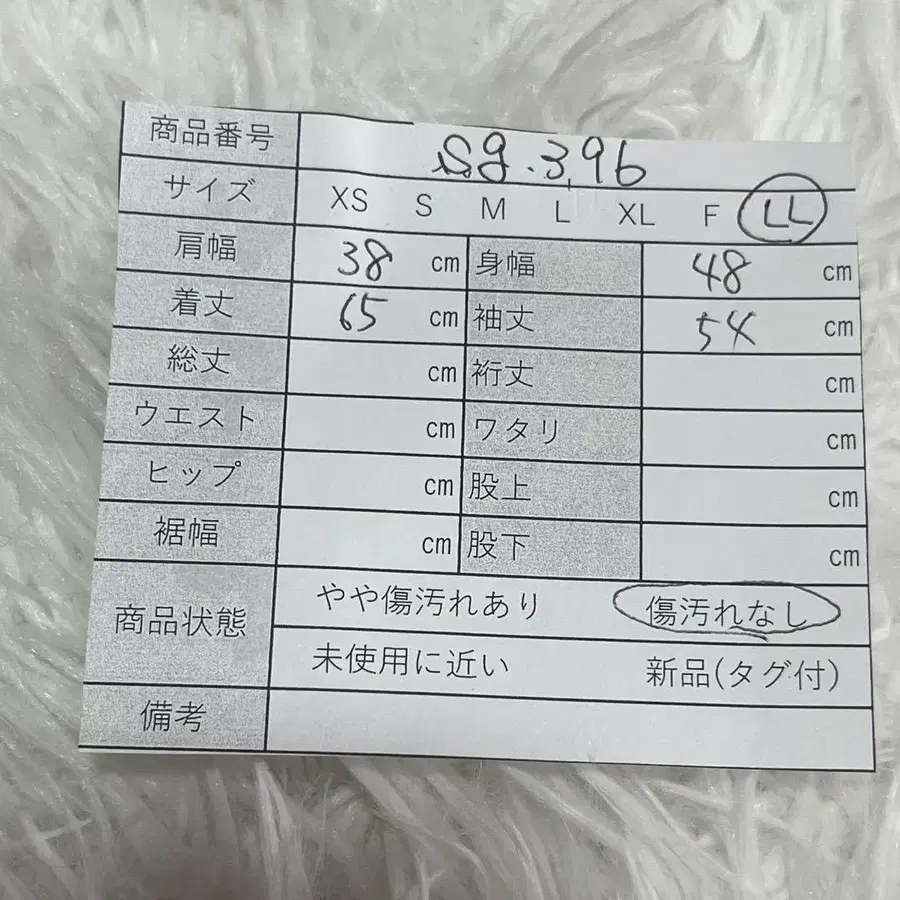 商品番号 sg.396
サイズ XS S M L XL F LL
肩幅 38 cm 身幅 48 cm
着丈 65 cm 袖丈 54 cm
総丈 cm 裄丈 cm
ウエスト cm ワタリ cm
ヒップ cm 股上 cm
裾幅 cm 股下 cm
商品状態 やや傷汚れあり 傷汚れなし
未使用に近い 新品(タグ付)
備考